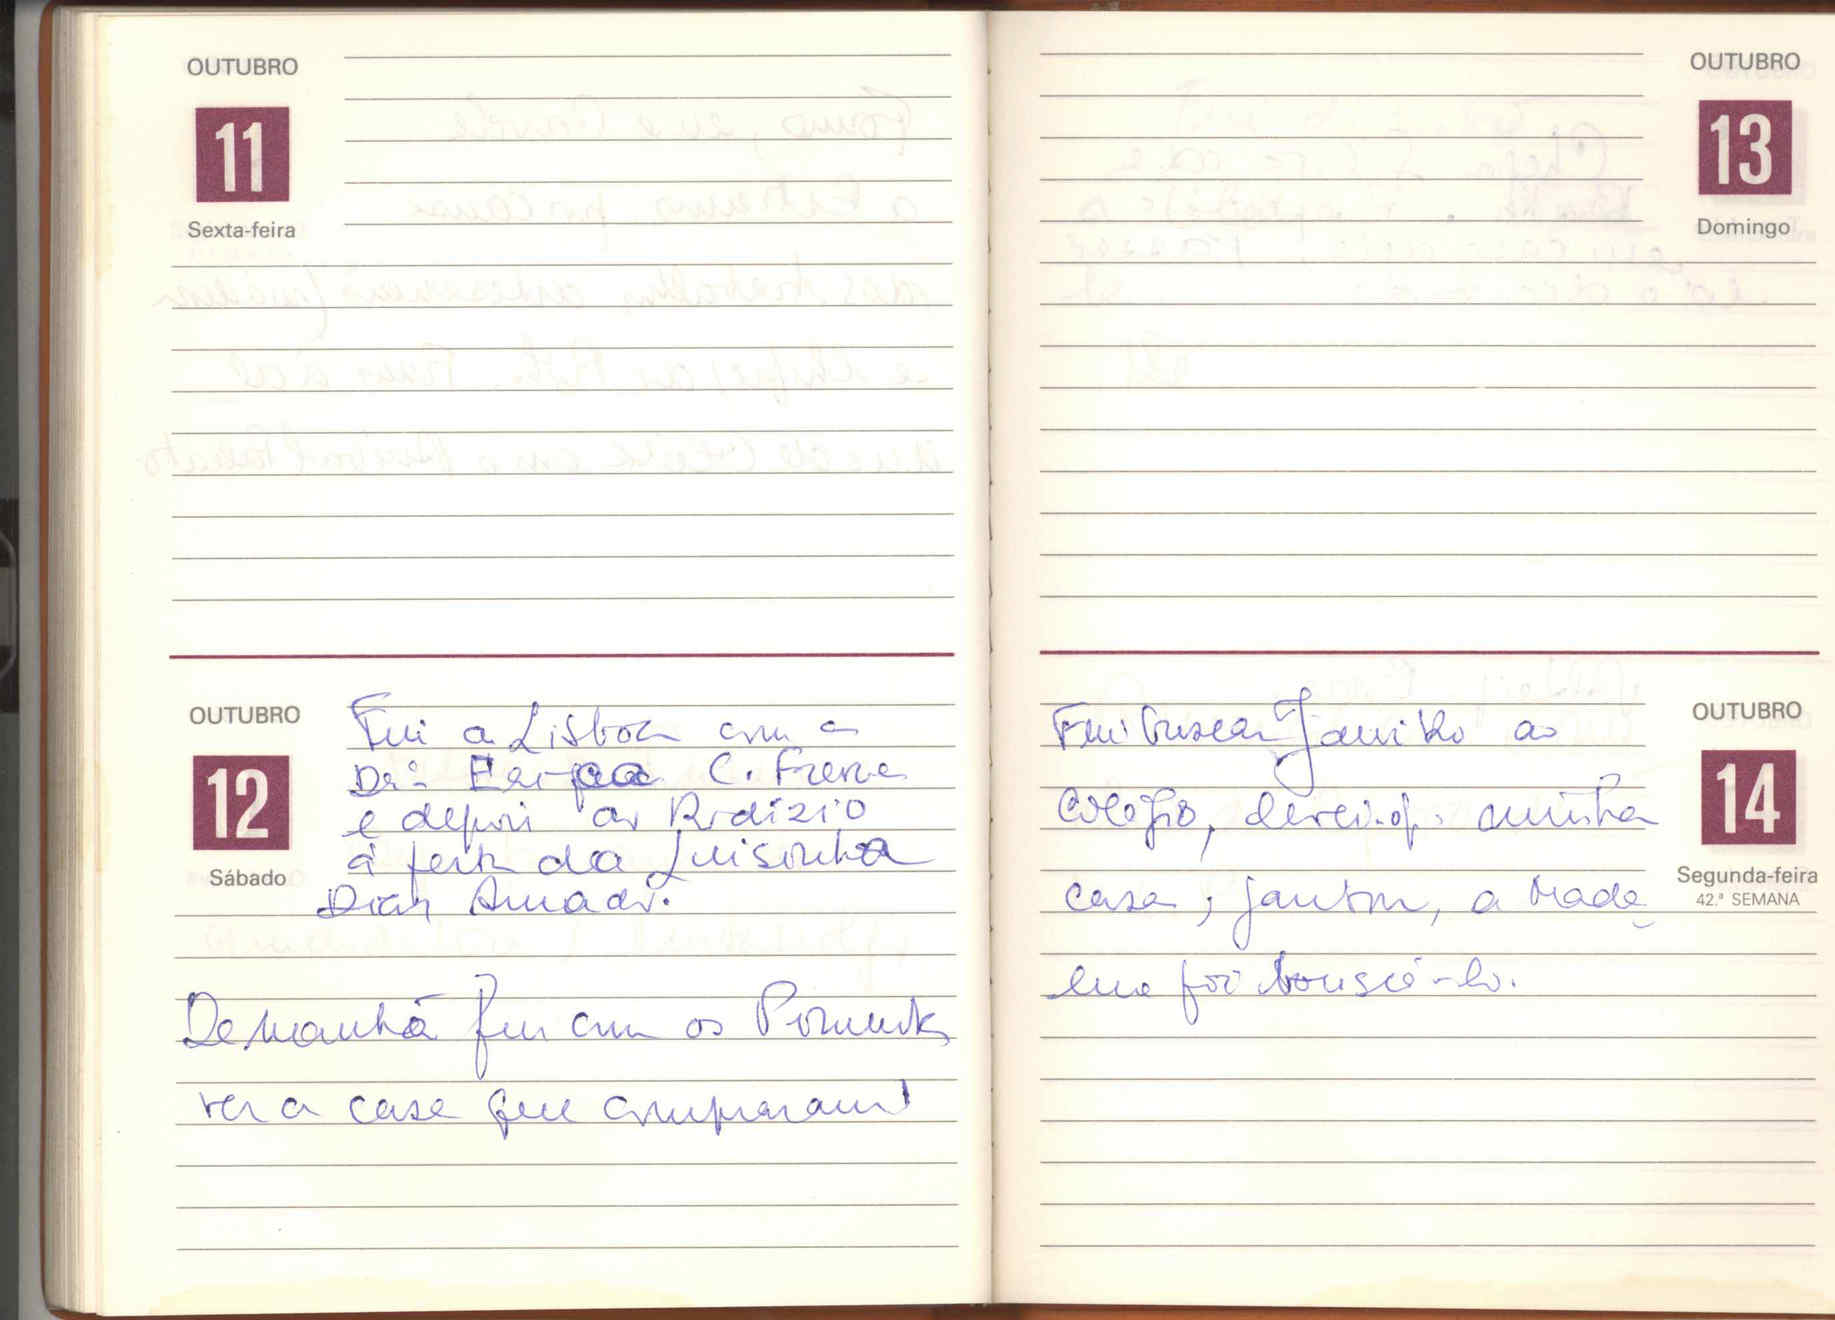 OUTUBRO
11
Sexta-feira
OUTUBRO
12
Sábado
Fui a Lisboa com a
Drª C. Freire
e depois ao Rodízio
à festa da Luisinha
Dias Amado.
De manhã fui com os
ver a casa que compraram
OUTUBRO
13
Domingo
OUTUBRO
14
Segunda-feira
42.ª SEMANA
Fui buscar Janito ao
Colégio, minha
casa, jantou, a Mada
lena foi buscá-lo.